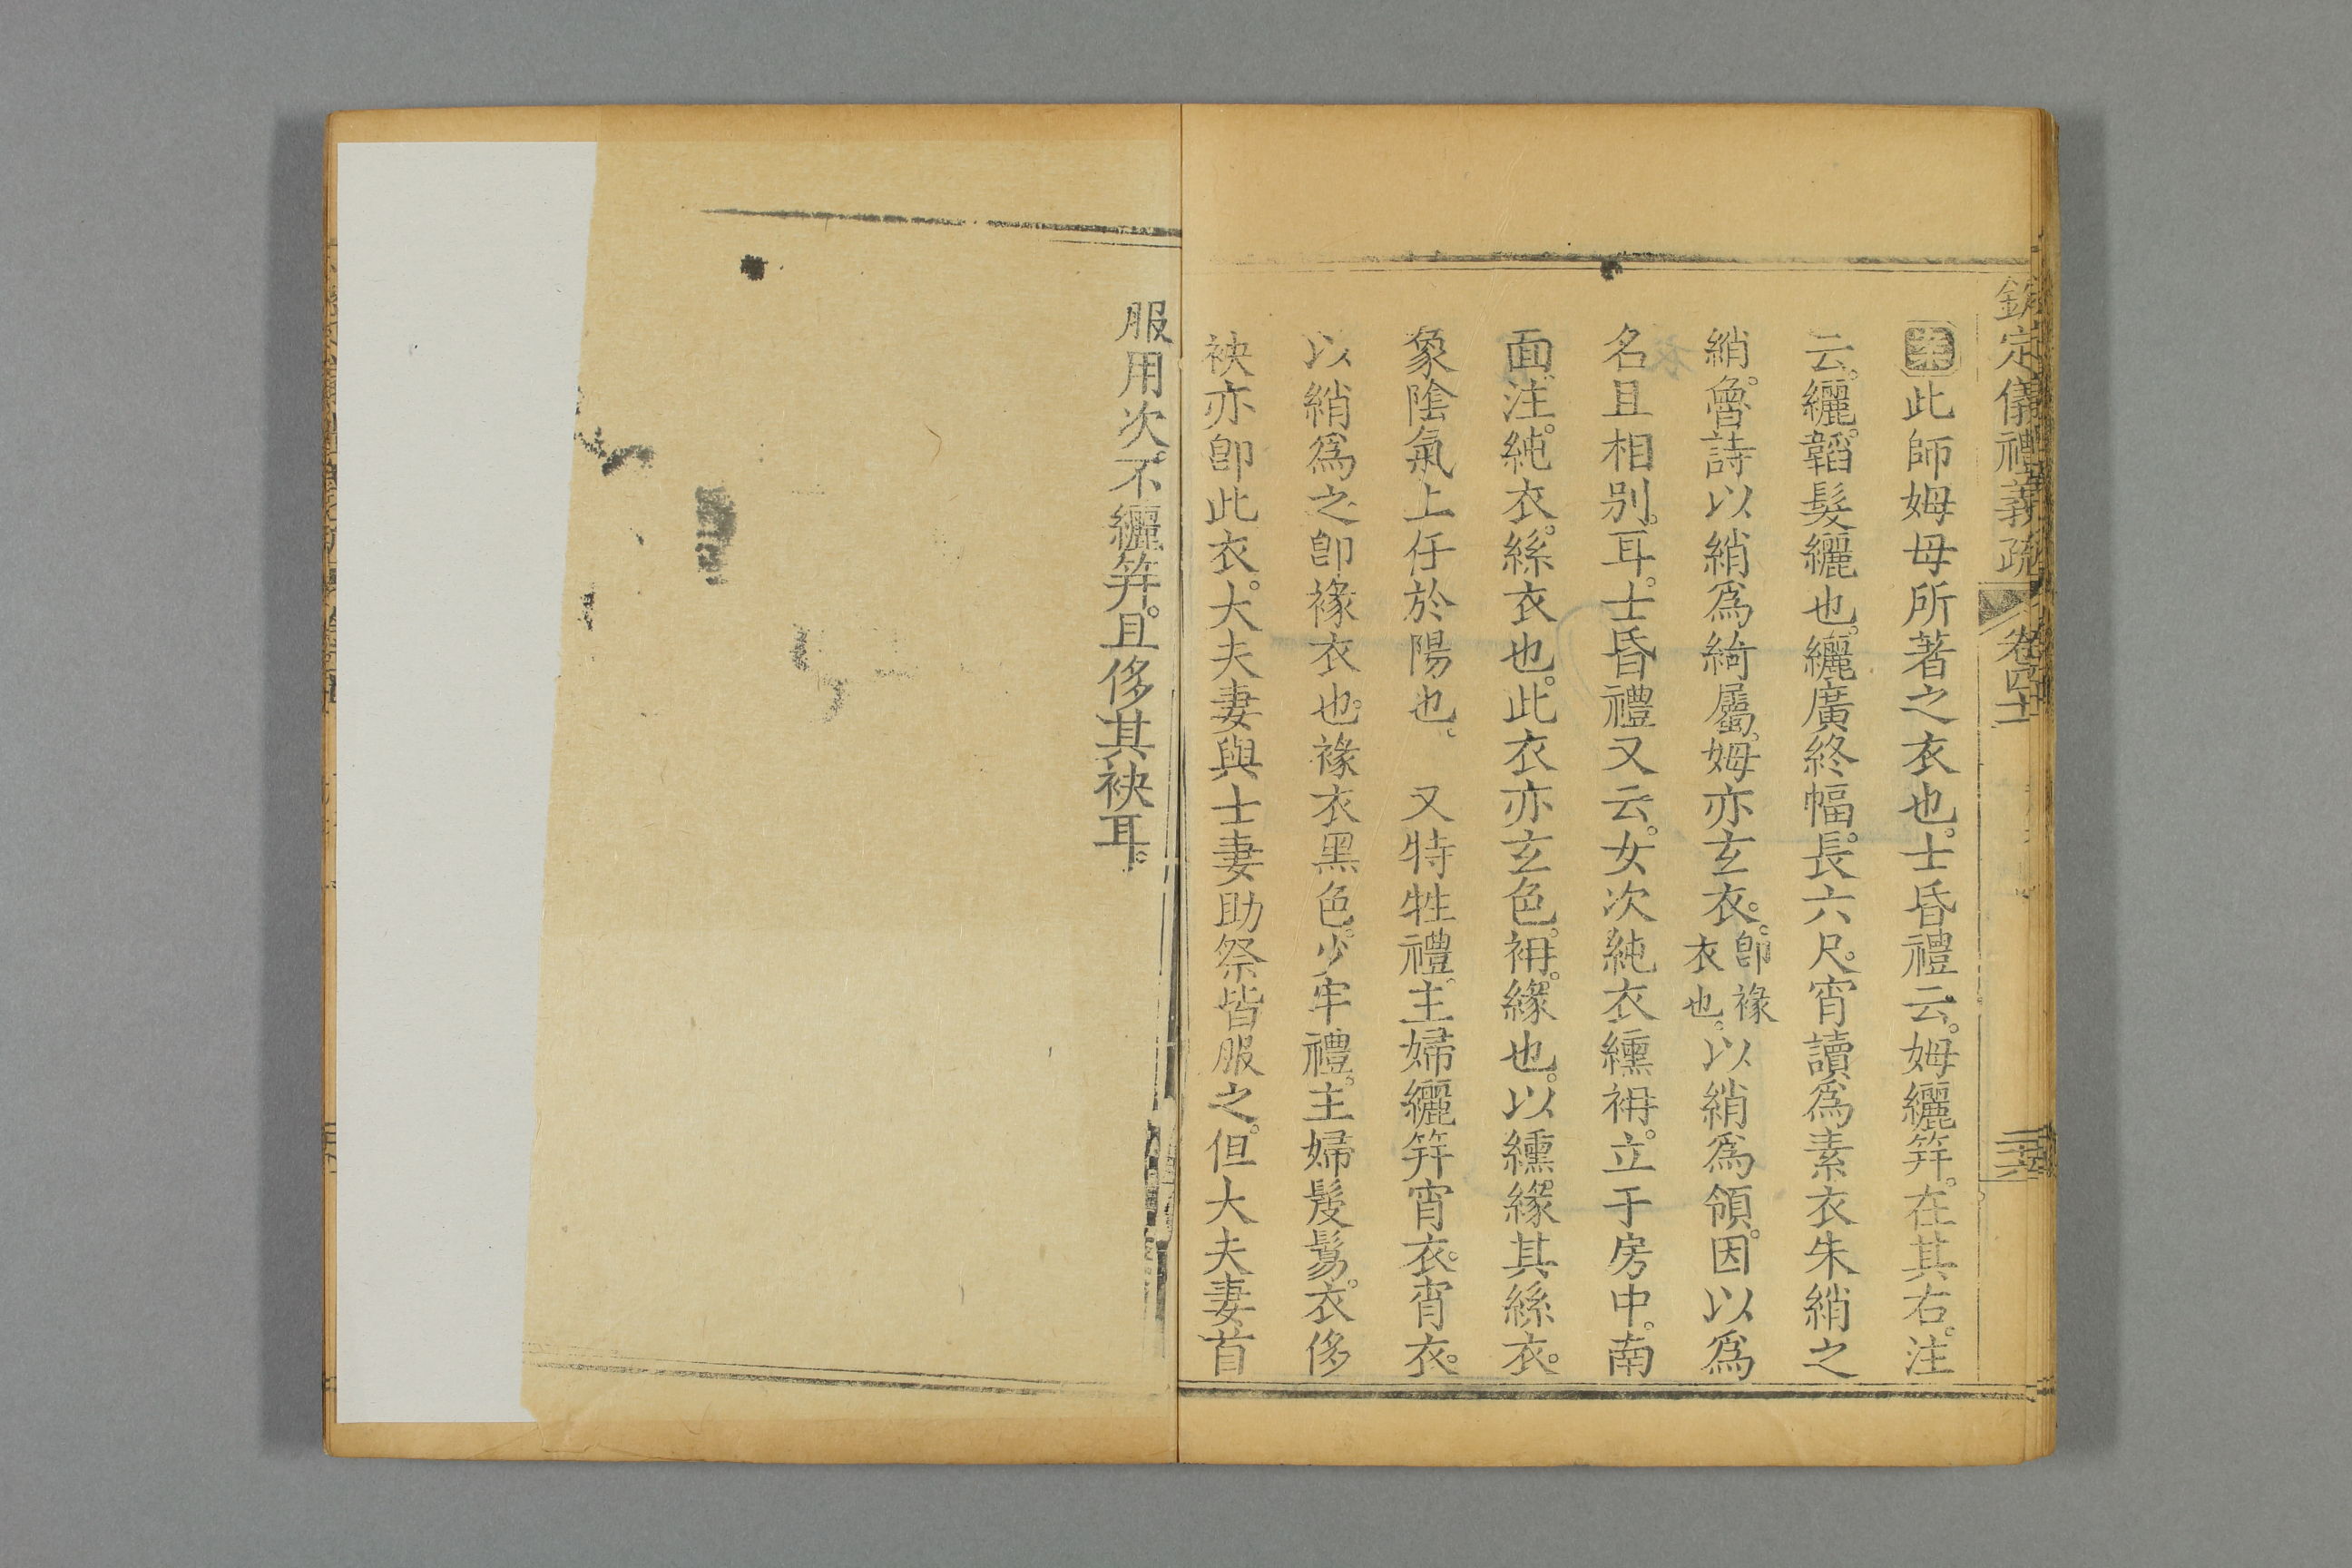 欽定儀禮義疏 卷四十 二十六
業此師姆母所著之衣也。士昏禮云。姆纚筓。在其右。注
云。纚。韜髮纚也。纚廣終幅。長六尺。宵讀爲素衣朱綃之
綃。魯詩以綃爲綺屬。姆亦玄衣。卽褖衣也。以綃爲領。因以爲
名。且相別耳。士昏禮又云。女次純衣纁袡。立于房中。南
面。注。純衣。絲衣也。此衣亦玄色。袡。緣也。以纁緣其絲衣。
象陰氣上任於陽也。 又特牲禮。主婦纚筓宵衣。宵衣。
以綃爲之。卽褖衣也。褖衣黑色。少牢禮。主婦髲鬄。衣侈
袂。亦卽此衣。大夫妻與士妻助祭皆服之。但大夫妻首
服用次。不纚筓。且侈其袂耳。